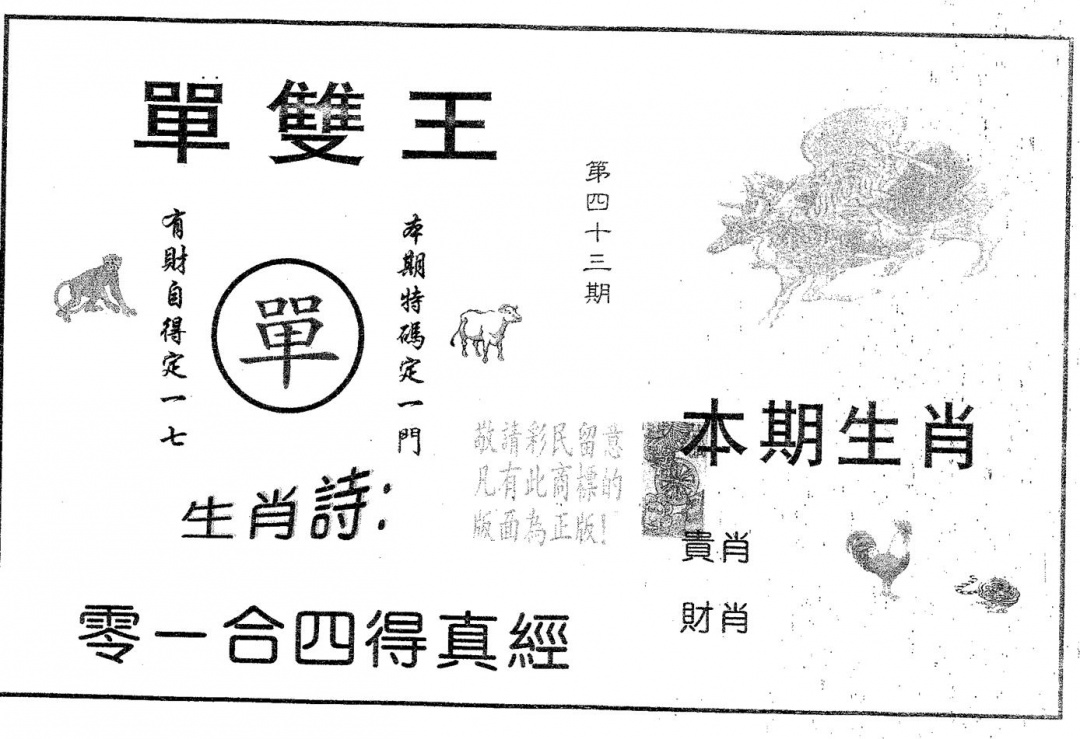 單雙王
第四十三期
本期特碼定一門
單
有財自得定一七
本期生肖
敬請彩民留意
凡有此商標的
版面為正版!
生肖詩:
貴肖
財肖
零一合四得真經